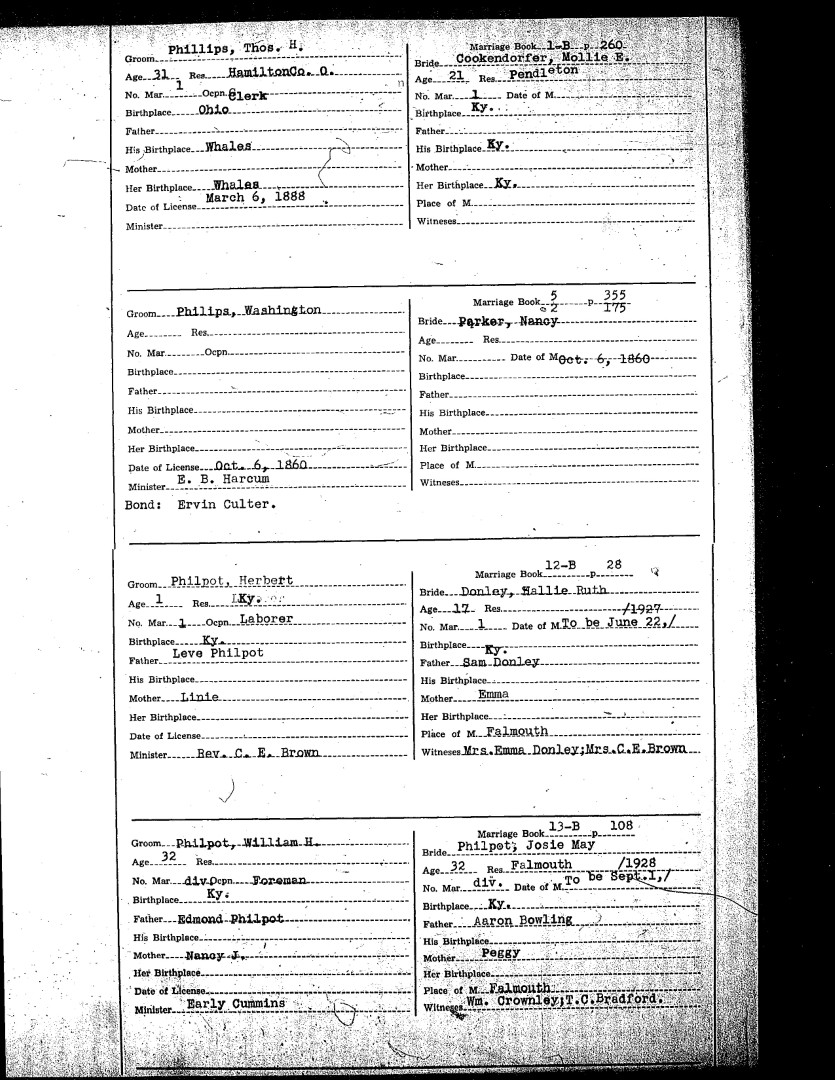 Groom Phillips, Thos. H.
Age 31 Res. HamiltonCo. O.
No. Mar. 1 Ocpn. Clerk
Birthplace Ohio
Father
His Birthplace Whales
Mother
Her Birthplace Whales
Date of License March 6, 1888
Minister
Marriage Book 1-B p. 260
Bride Cookendorfer, Mollie E.
Age 21 Res. Pendleton
No. Mar. 1 Date of M.
Birthplace Ky.
Father
His Birthplace Ky.
Mother
Her Birthplace Ky.
Place of M.
Witneses
Groom Philips, Washington
Age Res.
No. Mar. Ocpn.
Birthplace
Father
His Birthplace
Mother
Her Birthplace
Date of License Oct. 6, 1860
Minister E. B. Harcum
Bond: Ervin Culter.
Marriage Book 5 p. 355
2 175
Bride Parker, Nancy
Age Res.
No. Mar. Date of M. Oct. 6, 1860
Birthplace
Father
His Birthplace
Mother
Her Birthplace
Place of M.
Witneses
Groom Philpot, Herbert
Age 1 Res. Ky.
No. Mar. 1 Ocpn. Laborer
Birthplace Ky.
Father Leve Philpot
His Birthplace
Mother Linie
Her Birthplace
Date of License
Minister Rev. C. E. Brown
Marriage Book 12-B p. 28
Bride Donley, Hallie Ruth
Age 17 Res. /1927
No. Mar. 1 Date of M. To be June 22,/
Birthplace Ky.
Father Sam Donley
His Birthplace
Mother Emma
Her Birthplace
Place of M. Falmouth
Witneses Mrs.Emma Donley;Mrs.C.E.Brown
Groom Philpot, William H.
Age 32 Res.
No. Mar. div. Ocpn. Foreman
Birthplace Ky.
Father Edmond Philpot
His Birthplace
Mother Nancy J.
Her Birthplace
Date of License
Minister Early Cummins
Marriage Book 13-B p. 108
Bride Philpot, Josie May
Age 32 Res. Falmouth /1928
No. Mar. div. Date of M. To be Sept.1,/
Birthplace Ky.
Father Aaron Bowling
His Birthplace
Mother Peggy
Her Birthplace
Place of M. Falmouth
Witneses Wm. Crownley;T.C.Bradford.